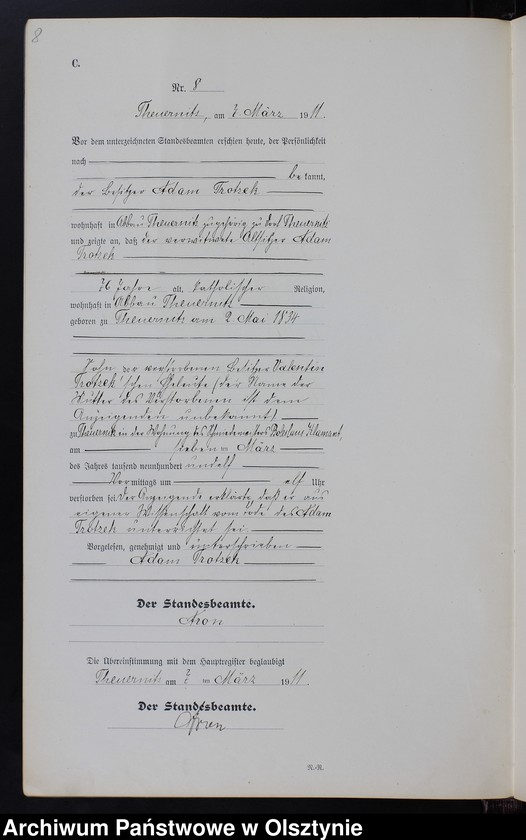 8
C.
Nr. 8
Theuernitz, am 7. März 1911.
Vor dem unterzeichneten Standesbeamten erschien heute, der Persönlichkeit
nach
bekannt,
der Besitzer Adam Trotzek
wohnhaft in Abbau Theuernitz zugehörig zu Dorf Theuernitz
und zeigte an, daß der verwitwete Altsitzer Adam
Trotzek
76 Jahre alt, katholischer Religion,
wohnhaft in Abbau Theuernitz
geboren zu Theuernitz am 2. Mai 1834
Sohn der verstorbenen Besitzer Valentin
Trotzek'schen Eheleute (der Name der
Mutter des Verstorbenen ist dem
Anzeigenden unbekannt)
zu Theuernitz in der Wohnung des Schmiedemeisters Klamant,
am sieben März
des Jahres tausend neunhundert und elf
Vormittags um elf Uhr
verstorben sei. Der Anzeigende erklärte, daß er aus
eigener Wissenschaft vom Tode des Adam
Trotzek unterrichtet sei.
Vorgelesen, genehmigt und unterschrieben
Adam Trotzek
Der Standesbeamte.
Die Übereinstimmung mit dem Hauptregister beglaubigt
Theuernitz am 7. ten März 1911.
Der Standesbeamte.
N.-R.
Archiwum Państwowe w Olsztynie